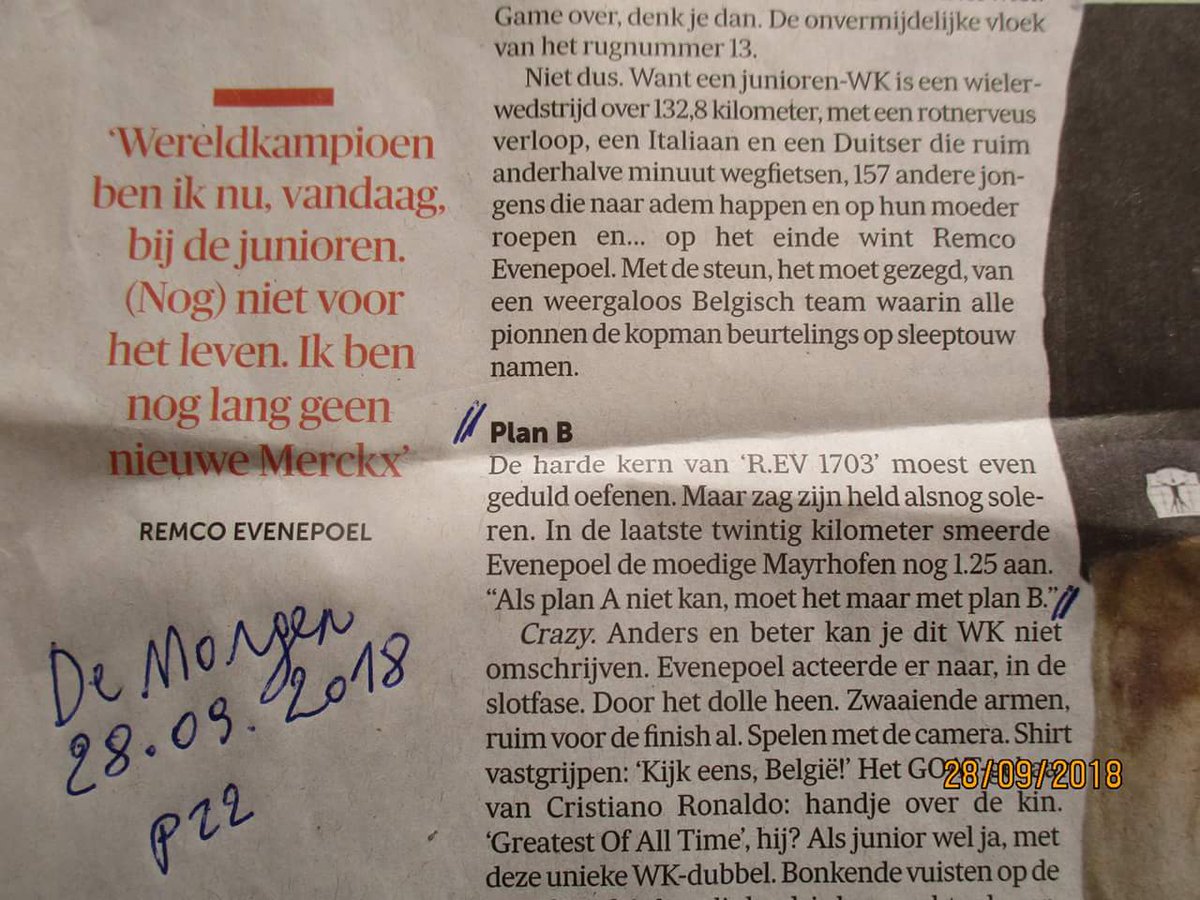 ‘Wereldkampioen
ben ik nu, vandaag,
bij de junioren.
(Nog) niet voor
het leven. Ik ben
nog lang geen
nieuwe Merckx’
REMCO EVENEPOEL
De Morgen
28.09.2018
p22
Game over, denk je dan. De onvermijdelijke vloek
van het rugnummer 13.
Niet dus. Want een junioren-WK is een wieler-
wedstrijd over 132,8 kilometer, met een rotnerveus
verloop, een Italiaan en een Duitser die ruim
anderhalve minuut wegfietsen, 157 andere jon-
gens die naar adem happen en op hun moeder
roepen en... op het einde wint Remco
Evenepoel. Met de steun, het moet gezegd, van
een weergaloos Belgisch team waarin alle
pionnen de kopman beurtelings op sleeptouw
namen.
Plan B
De harde kern van ‘R.EV 1703’ moest even
geduld oefenen. Maar zag zijn held alsnog sole-
ren. In de laatste twintig kilometer smeerde
Evenepoel de moedige Mayrhofen nog 1.25 aan.
“Als plan A niet kan, moet het maar met plan B.”
Crazy. Anders en beter kan je dit WK niet
omschrijven. Evenepoel acteerde er naar, in de
slotfase. Door het dolle heen. Zwaaiende armen,
ruim voor de finish al. Spelen met de camera. Shirt
vastgrijpen: ‘Kijk eens, België!’ Het
28/09/2018
van Cristiano Ronaldo: handje over de kin.
‘Greatest Of All Time’, hij? Als junior wel ja, met
deze unieke WK-dubbel. Bonkende vuisten op de